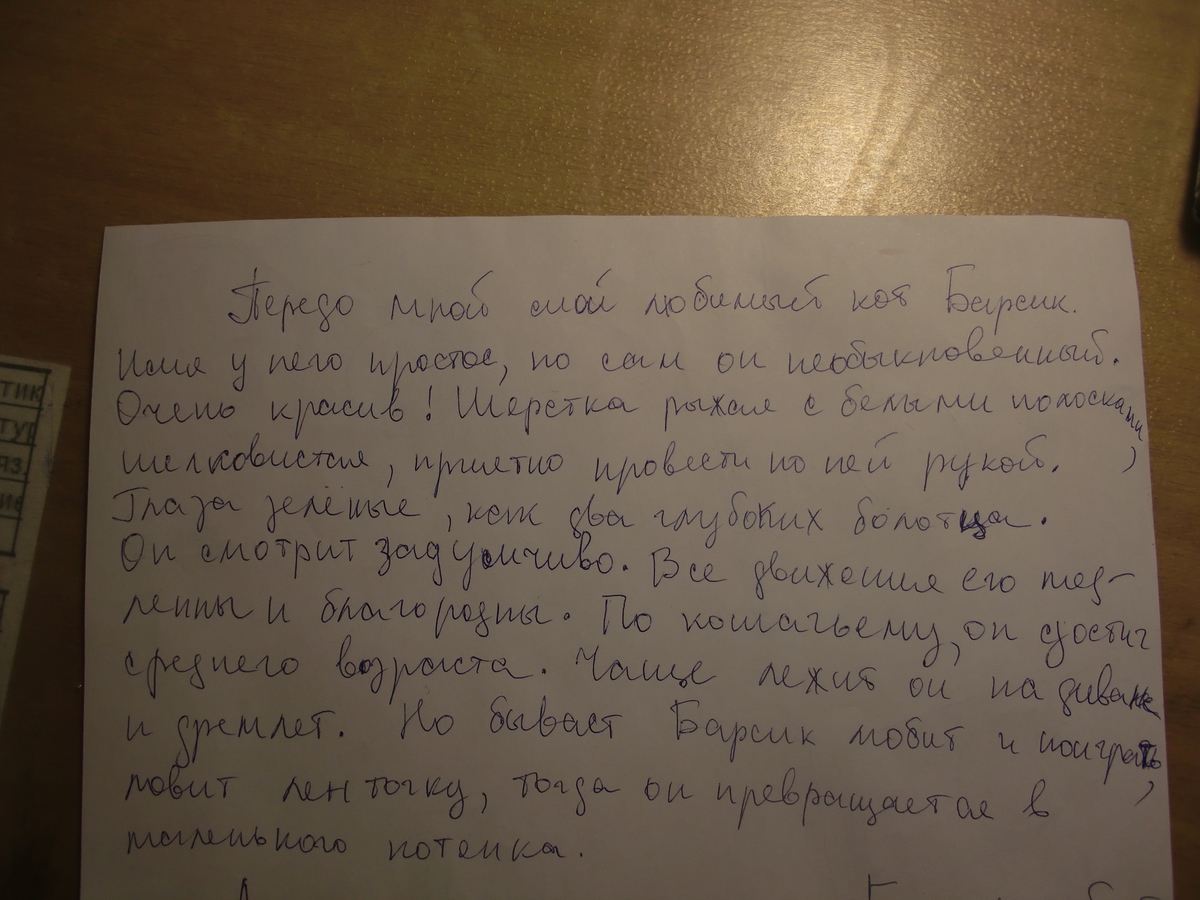 Передо мной мой любимый кот Барсик.
Имя у него простое, но сам он необыкновенный.
Очень красив! Шерстка рыжая с белыми полосками,
шелковистая, приятно провести по ней рукой.
Глаза зелёные, как два глубоких болотца.
Он смотрит задумчиво. Все движения его мед-
ленны и благородны. По кошачьему, он достиг
среднего возраста. Чаще лежит он на диване
и дремлет. Но бывает Барсик любит и поиграть,
ловит ленточку, тогда он превращается в
маленького котенка.
ТИК
ТУР
ЯЗ.